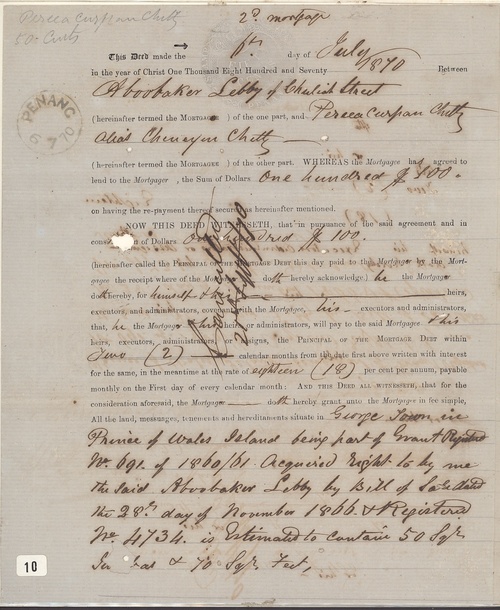 2d. mortgage
Pereea Curpan Chitty
50 Cents
This Deed made the 6th. day of July 1870
in the year of Christ One Thousand Eight Hundred and Seventy Between
Aboobaker Lebby of Chuliah Street
PENANG
6 7 70
(hereinafter termed the MORTGAGOR ) of the one part, and Pereea Curpan Chitty
alias Chenayen Chitty
(hereinafter termed the MORTGAGEE ) of the other part. WHEREAS the Mortgagee has agreed to
lend to the Mortgagor , the Sum of Dollars One hundred $ 100.
on having the re-payment thereof secured as hereinafter mentioned.
NOW THIS DEED WITNESSETH, that in pursuance of the said agreement and in
of Dollars One hundred $ 100.
(hereinafter called the PRINCIPAL OF THE MORTGAGE DEBT this day paid to the Mortgagor by the Mort-
gagee the receipt where of the Mortgagor doth hereby acknowledge) he the Mortgagor
doth hereby, for himself & his heirs,
executors, and administrators, covenant with the Mortgagee, his executors and administrators,
that, he the Mortgagor his heirs or administrators, will pay to the said Mortgagee & his
heirs, executors, administrators, or assigns, the PRINCIPAL OF THE MORTGAGE DEBT within
Two (2) calendar months from the date first above written with interest
for the same, in the meantime at the rate of eighteen (18) per cent per annum, payable
monthly on the First day of every calendar month: AND THIS DEED ALSO WITNESSETH, that for the
consideration aforesaid, the Mortgagor doth hereby grant unto the Mortgagee in fee simple,
All the land, messuages, tenements and hereditaments situate in George Town in
Prince of Wales Island being part of Grant Registered
No. 691. of 1860/61. Acquired Right to by me
the said Aboobaker Lebby by Bill of Sale dated
the 28th. day of November 1866. & Registered
No. 4734. is Estimated to contain 50 Sqr.
& 70 Sqr. Feet,
10